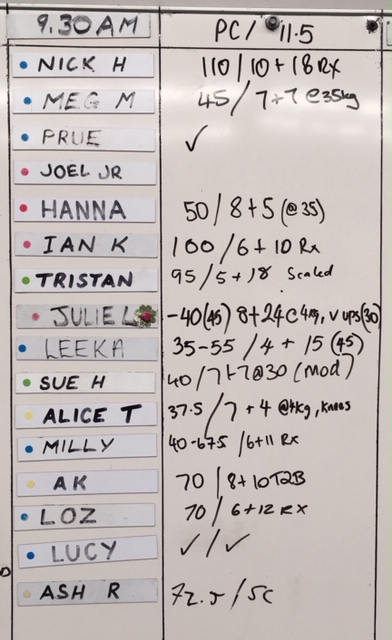 9.30AM PC/ 11.5
NICK H 110/10+18 RX
MEG M 45/7+7 @35kg
PRUE ✓
JOEL JR
HANNA 50/8+5 (@35)
IAN K 100/6+10 Rx
TRISTAN 95/5+18 Scaled
JULIE L -40(45) 8+24@4kg, V ups(30)
LEEKA 35-55/4+15 (45)
SUE H 40/7+7@30 (mod)
ALICE T 37.5/7+4 @4kg, knees
MILLY 40-67.5/6+11 Rx
AK 70/8+10T2B
LOZ 70/6+12 RX
LUCY ✓/✓
ASH R 72.5/SC